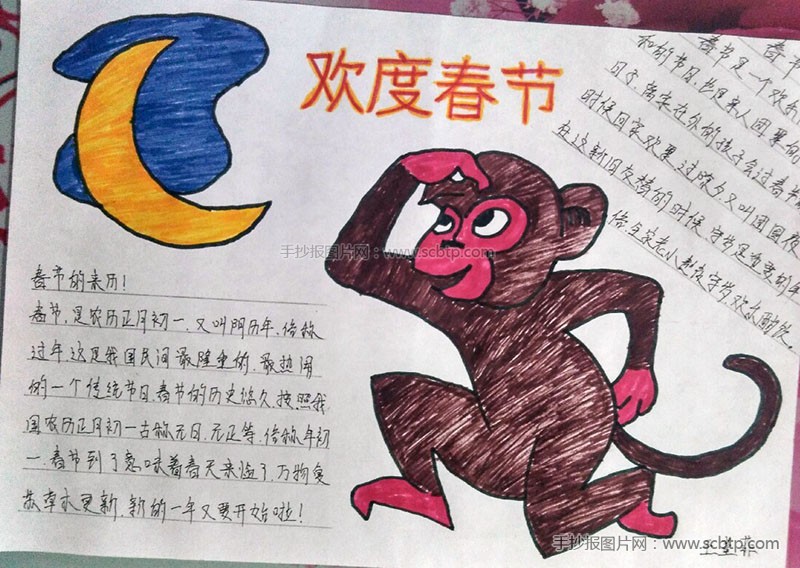 欢度春节
春节
春节是一个欢乐
和的节日,也是亲人团聚的
日子,离家在外的孩子会过春节
时候回家欢聚.过除夕又叫团圆夜
在这新旧交替的时候,守岁是重要的年
俗,全家老小起守岁欢太酣饮。
手抄报图片网:www.scbtp.com
春节的来历!
春节,是农历正月初一,又叫阴历年,俗称
过年.这是我国民间最隆重的,最热闹
的一个传统节日.春节的历史悠久,按照我
国农历正月初一古称元日,元正等,俗称年初
一.春节到了意味着春天来临了,万物复
苏草木更新,新的一年又要开始啦!
手抄报图片网:www.scbtp.com